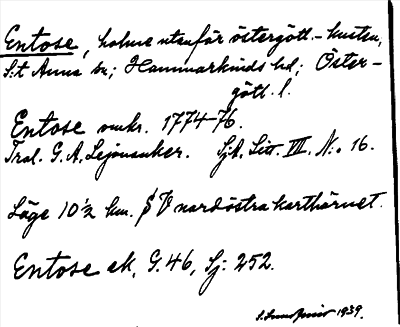 Entose, holme utanför östergötl.-kusten,
S:t Anna sn; Hammarkinds hd; Öster-
götl. l.
Entose omkr. 1774-76.
Tral. G. A. Lejonanker. Sjk. Litt. VII. N:o 16.
Läge 10½ km. S V nordöstra karthörnet.
Entose ek, G. 46, Sj: 252.
1939.